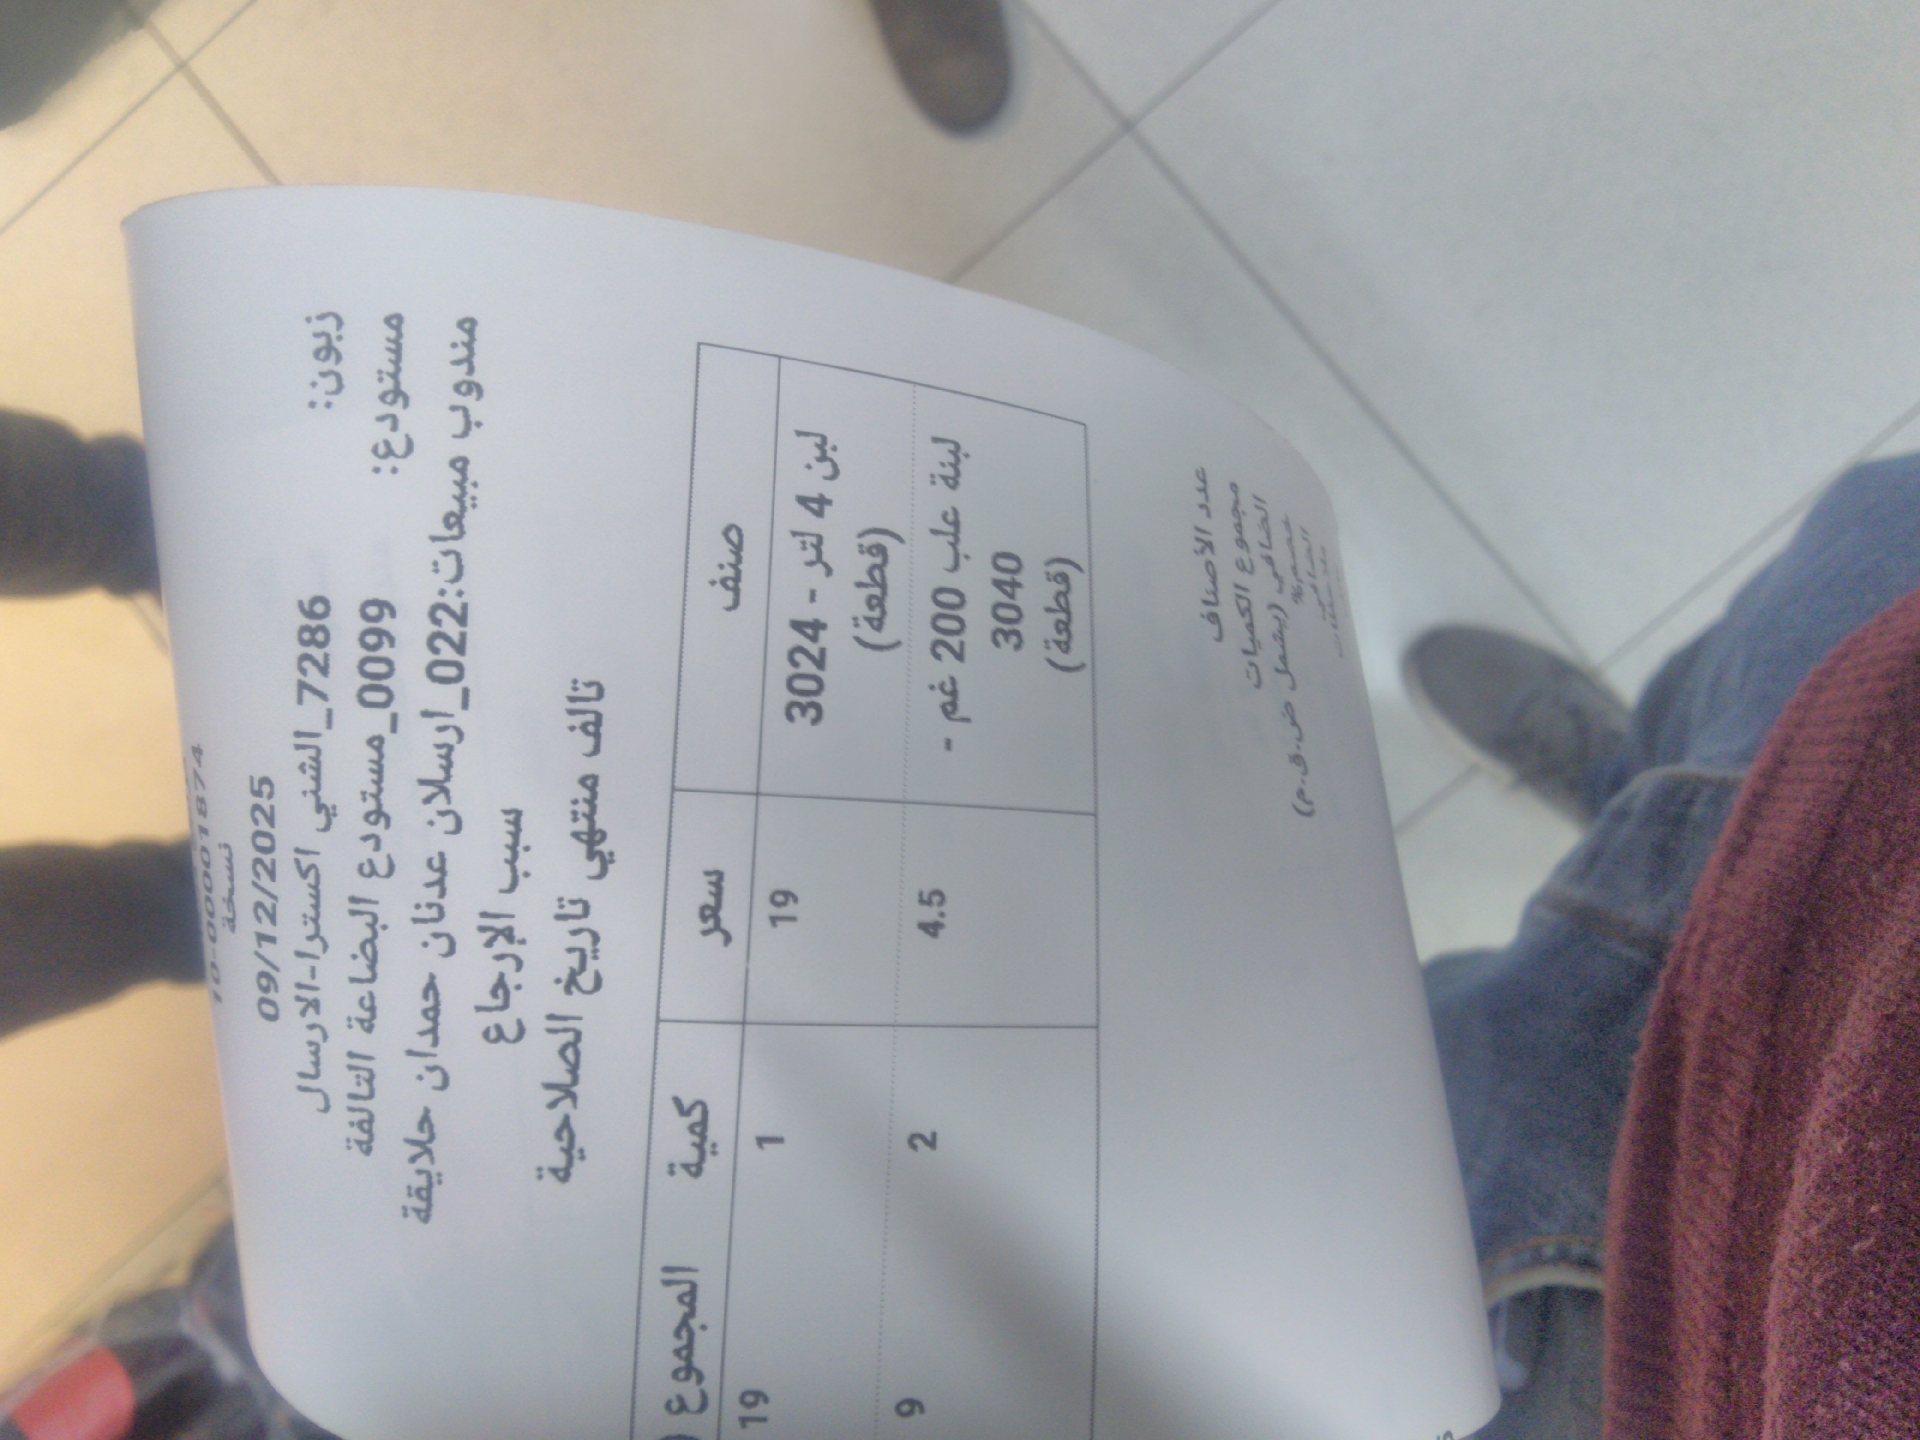 نسخة
09/12/2025
زبون: 7286_الشني اكسترا-الارسال
مستودع: 0099_مستودع البضاعة التالفة
مندوب مبيعات:022_ارسلان عدنان حمدان حلايقة
سبب الإرجاع
تالف منتهي تاريخ الصلاحية
صنف سعر كمية المجموع
لبن 4 لتر - 3024 19 1 19
(قطعة)
لبنة علب 200 غم - 4.5 2 9
3040
(قطعة)
عدد الأصناف
مجموع الكميات
الصافي (يشمل ض.ق.م)
خصم%